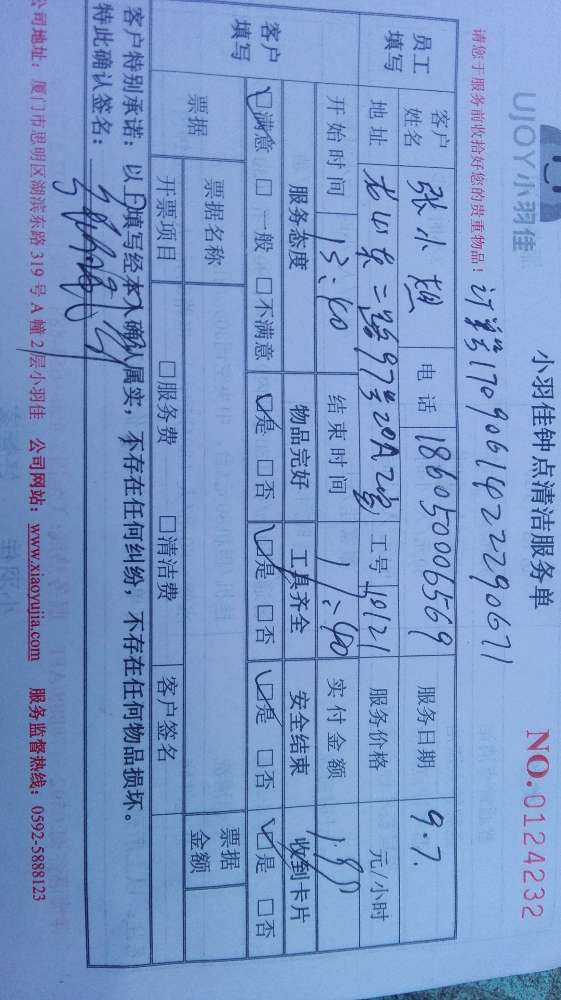 UJOY小羽佳
小羽佳钟点清洁服务单
NO.0124232
请您于服务前收拾好您的贵重物品!
17090614222290671
员工填写
客户姓名 张小姐 电话 186050006569 服务日期 9.7.
地址 二路97号20A 工号 服务价格 元/小时
开始时间 13:40 结束时间 17:40 实付金额
客户填写
服务态度 物品完好 工具齐全 安全结束 收到卡片
☑满意 □一般 □不满意 ☑是 □否 ☑是 □否 ☑是 □否 ☑是 □否
票据 票据名称 票据金额
开票项目 □服务费 □清洁费 客户签名
客户特别承诺:以上填写经本人确认属实,不存在任何纠纷,不存在任何物品损坏。
特此确认签名:
公司地址:厦门市思明区湖滨东路319号A幢2层小羽佳 公司网站:www.xiaoyujia.com 服务监督热线:0592-5888123